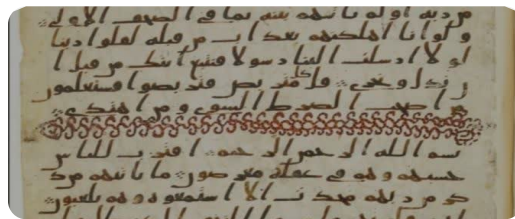 من ربه او لم تاتهم بينه ما في الصحف الاولى
ولو انا اهلكنهم بعذاب من قبله لقالوا ربنا
لولا ارسلت الينا رسولا فنتبع ايتك من قبل ا
ن نذل ونخزى قل كل متربص فتربصوا فستعلمون
من اصحب الصرط السوى ومن اهتدى
بسم الله الرحمن الرحيم اقترب للناس
حسبهم وهم في غفله معرضون ما ياتيهم من
ذكر من ربهم محدث الا استمعوه وهم يلعبون